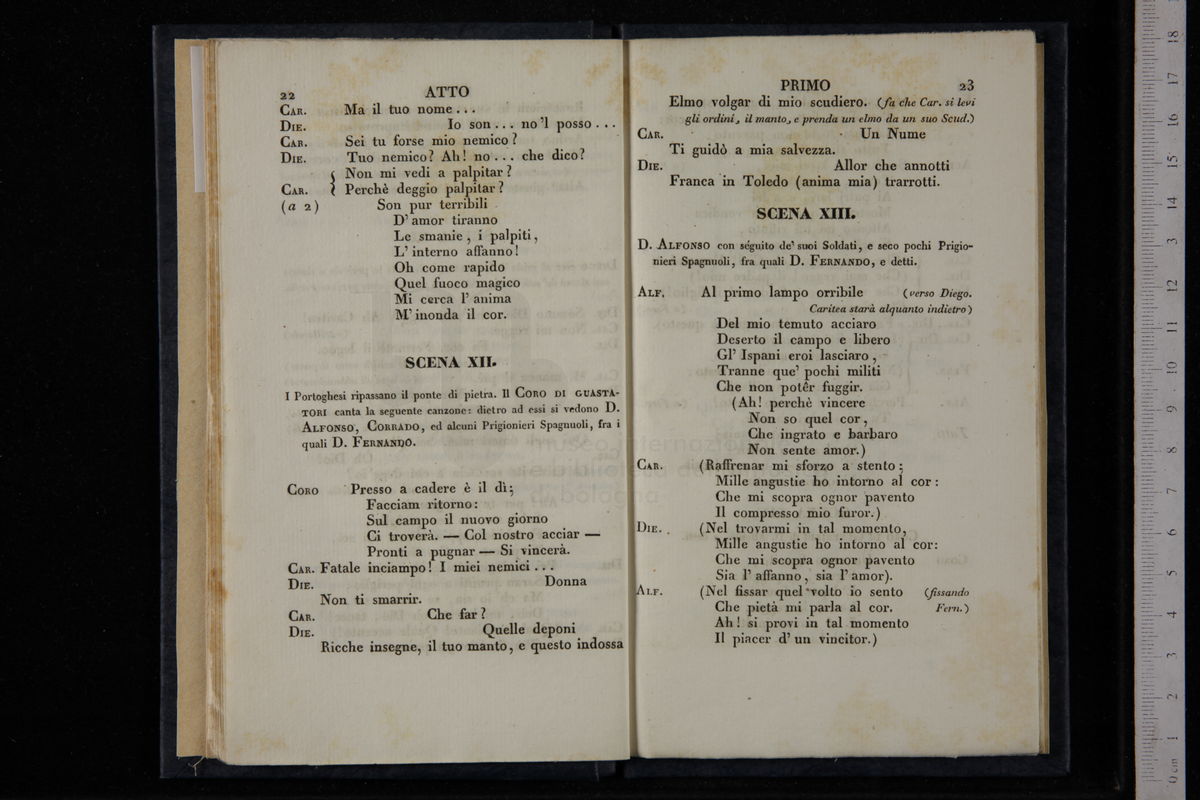 22 ATTO
CAR. Ma il tuo nome . . .
DIE. Io son . . . no'l posso . . .
CAR. Sei tu forse mio nemico ?
DIE. Tuo nemico? Ah! no . . . che dico?
{ Non mi vedi a palpitar ?
CAR. { Perchè deggio palpitar ?
(a 2) Son pur terribili
D' amor tiranno
Le smanie , i palpiti ,
L' interno affanno !
Oh come rapido
Quel fuoco magico
Mi cerca l' anima
M' inonda il cor.
SCENA XII.
I Portoghesi ripassano il ponte di pietra. Il CORO DI GUASTA-
TORI canta la seguente canzone: dietro ad essi si vedono D.
ALFONSO, CORRADO, ed alcuni Prigionieri Spagnuoli, fra i
quali D. FERNANDO.
CORO Presso a cadere è il dì;
Facciam ritorno :
Sul campo il nuovo giorno
Ci troverà. — Col nostro acciar —
Pronti a pugnar — Si vincerà.
CAR. Fatale inciampo ! I miei nemici . . .
DIE. Donna
Non ti smarrir.
CAR. Che far ?
DIE. Quelle deponi
Ricche insegne, il tuo manto, e questo indossa
PRIMO 23
Elmo volgar di mio scudiero. (fa che Car. si levi
gli ordini, il manto, e prenda un elmo da un suo Scud.)
CAR. Un Nume
Ti guidò a mia salvezza.
DIE. Allor che annotti
Franca in Toledo (anima mia) trarrotti.
SCENA XIII.
D. ALFONSO con séguito de' suoi Soldati, e seco pochi Prigio-
nieri Spagnuoli, fra quali D. FERNANDO, e detti.
ALF. Al primo lampo orribile (verso Diego.
Caritea starà alquanto indietro)
Del mio temuto acciaro
Deserto il campo e libero
Gl' Ispani eroi lasciaro ,
Tranne que' pochi militi
Che non potêr fuggir.
(Ah! perchè vincere
Non so quel cor ,
Che ingrato e barbaro
Non sente amor.)
CAR. (Raffrenar mi sforzo a stento ;
Mille angustie ho intorno al cor :
Che mi scopra ognor pavento
Il compresso mio furor.)
DIE. (Nel trovarmi in tal momento,
Mille angustie ho intorno al cor:
Che mi scopra ognor pavento
Sia l' affanno , sia l' amor).
ALF. (Nel fissar quel volto io sento (fissando
Che pietà mi parla al cor. Fern.)
Ah ! si provi in tal momento
Il piacer d' un vincitor.)
museo internazionale
e biblioteca della
di bologna
0 cm 1 2 3 4 5 6 7 8 9 10 11 12 13 14 15 16 17 18